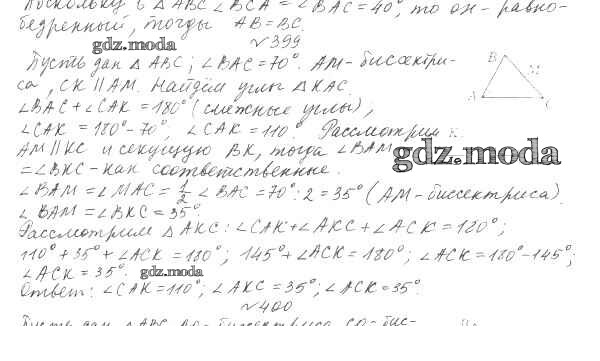 Поскольку в △ABC ∠BCA = ∠BAC = 40°, то он - равно-
бедренный, тогда AB = BC.
gdz.moda
№399
Пусть дан △ABC; ∠BAC = 70°. AM - биссектри-
са, CK ∥ AM. Найдём углы △KAC.
∠BAC + ∠CAK = 180° (смежные углы);
∠CAK = 180° - 70°; ∠CAK = 110°. Рассмотрим
AM ∥ KC и секущую BK, тогда ∠BAM
= ∠BKC - как соответственные.
gdz.moda
∠BAM = ∠MAC = 1/2 ∠BAC = 70° : 2 = 35° (AM - биссектриса).
∠BAM = ∠BKC = 35°.
Рассмотрим △AKC: ∠CAK + ∠AKC + ∠ACK = 180°;
110° + 35° + ∠ACK = 180°; 145° + ∠ACK = 180°; ∠ACK = 180° - 145°;
∠ACK = 35°.
gdz.moda
Ответ: ∠CAK = 110°; ∠AKC = 35°; ∠ACK = 35°.
№400
Пусть дан △ABC, - биссектриса, - бис-
B
M
A
C
K